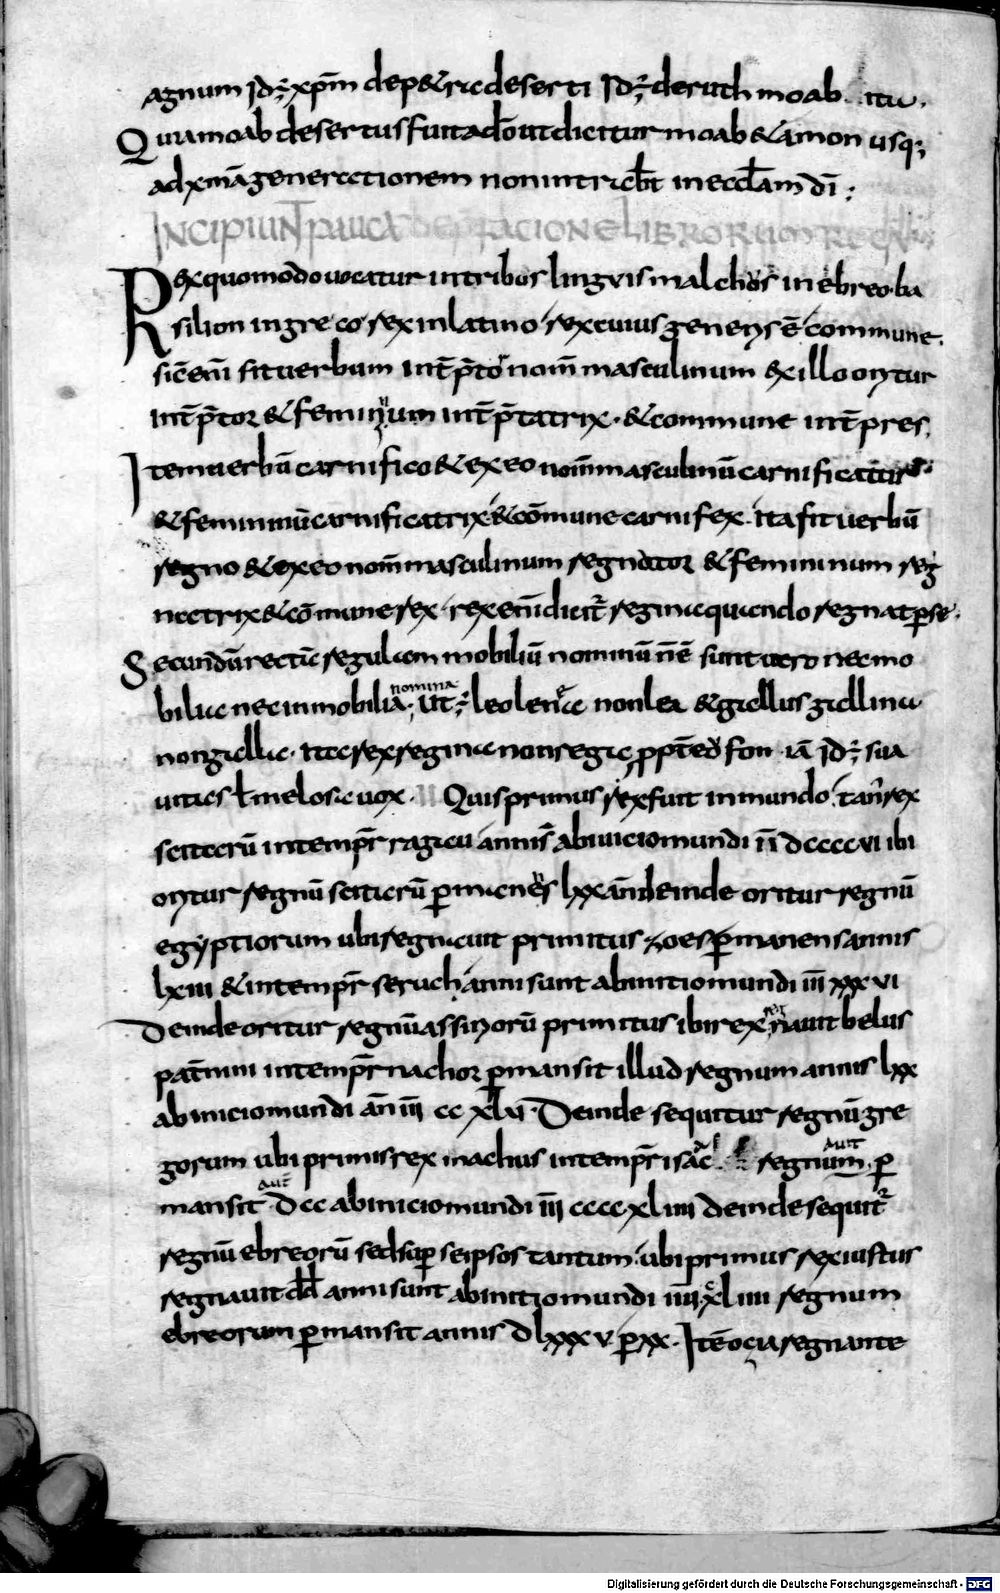 agnum idē xp̄m depetra deserti Idē de ruth moab itū.
Quia moab desertus fuit a dō ut dicitur moab & amon usq;
ad xmā generationem non intrabt̄ in eccl̄am dī;
INCIPIUNT PAUCA DE RACIONE LIBRORUM REGUM
Rex quomodo uocatur in tribus linguis malchus in ebreo ba
silion in greco rex in latino rex cuius generis ē commune
sic̄ enī fit uerbum int̄p̄to nom̄ masculinum & ex illo oritur
int̄p̄tor & femininum int̄p̄tatrix. & commune int̄pres.
Item uerbū carnifico & ex eo nom̄ masculinū carnificatur
& femininū carnificatrix & cōmune carnifex. ita fit uerbū
regno & ex eo nom̄ masculinum regnator & femininum reg
natrix & cōmune rex. rex enī dicit̄ regina quando regnat p̱ se.
Secundū rectā regulam mobiliū nominū n̄ ē sunt uero nec mo
bilia nec inmobilia nomina. ut; leo leena non lea & gallus gallina
non galla. ita rex regina non rega propt̄ eo fon iā idē; sua
uitas ł melosa uox. Quis primus rex fuit in mundo. tan̄ rex
scitarū in temp̄r ragau annis ab inicio mundi īī dccccvi ibi
oritur regnū scitarū p̱manens lxx an̄ deinde oritur regnū
egyptiorum ubi regnauit primitus zoes p̱manens annis
lxiii & in temp̄r seruch anni sunt ab initio mundi īīī xxxvi
Deinde oritur regnū assiriorū primitus ibi rex regnauit belus
pat̄ nini in temp̄r nachor p̱mansit illud regnum annis lxx
ab inicio mundi an̄ īīī cc xlv. Deinde sequitur regnū gre
gorum ubi primus rex inachus in temp̄r isāc regnum auit. p̱
mansit aūt dcc ab inicio mundi īīī cccc.xliiii deinde sequit̄
regnū ebreorū sed sup̱ se ipsos tantum. ubi primus rex iustus
regnauit dd̄ anni sunt ab initio mundi īīīī.c xliiii regnum
ebreorum p̱mansit annis dlxxxv p̱ xx. Itē ocia regnante
Digitalisierung gefördert durch die Deutsche Forschungsgemeinschaft - DFG